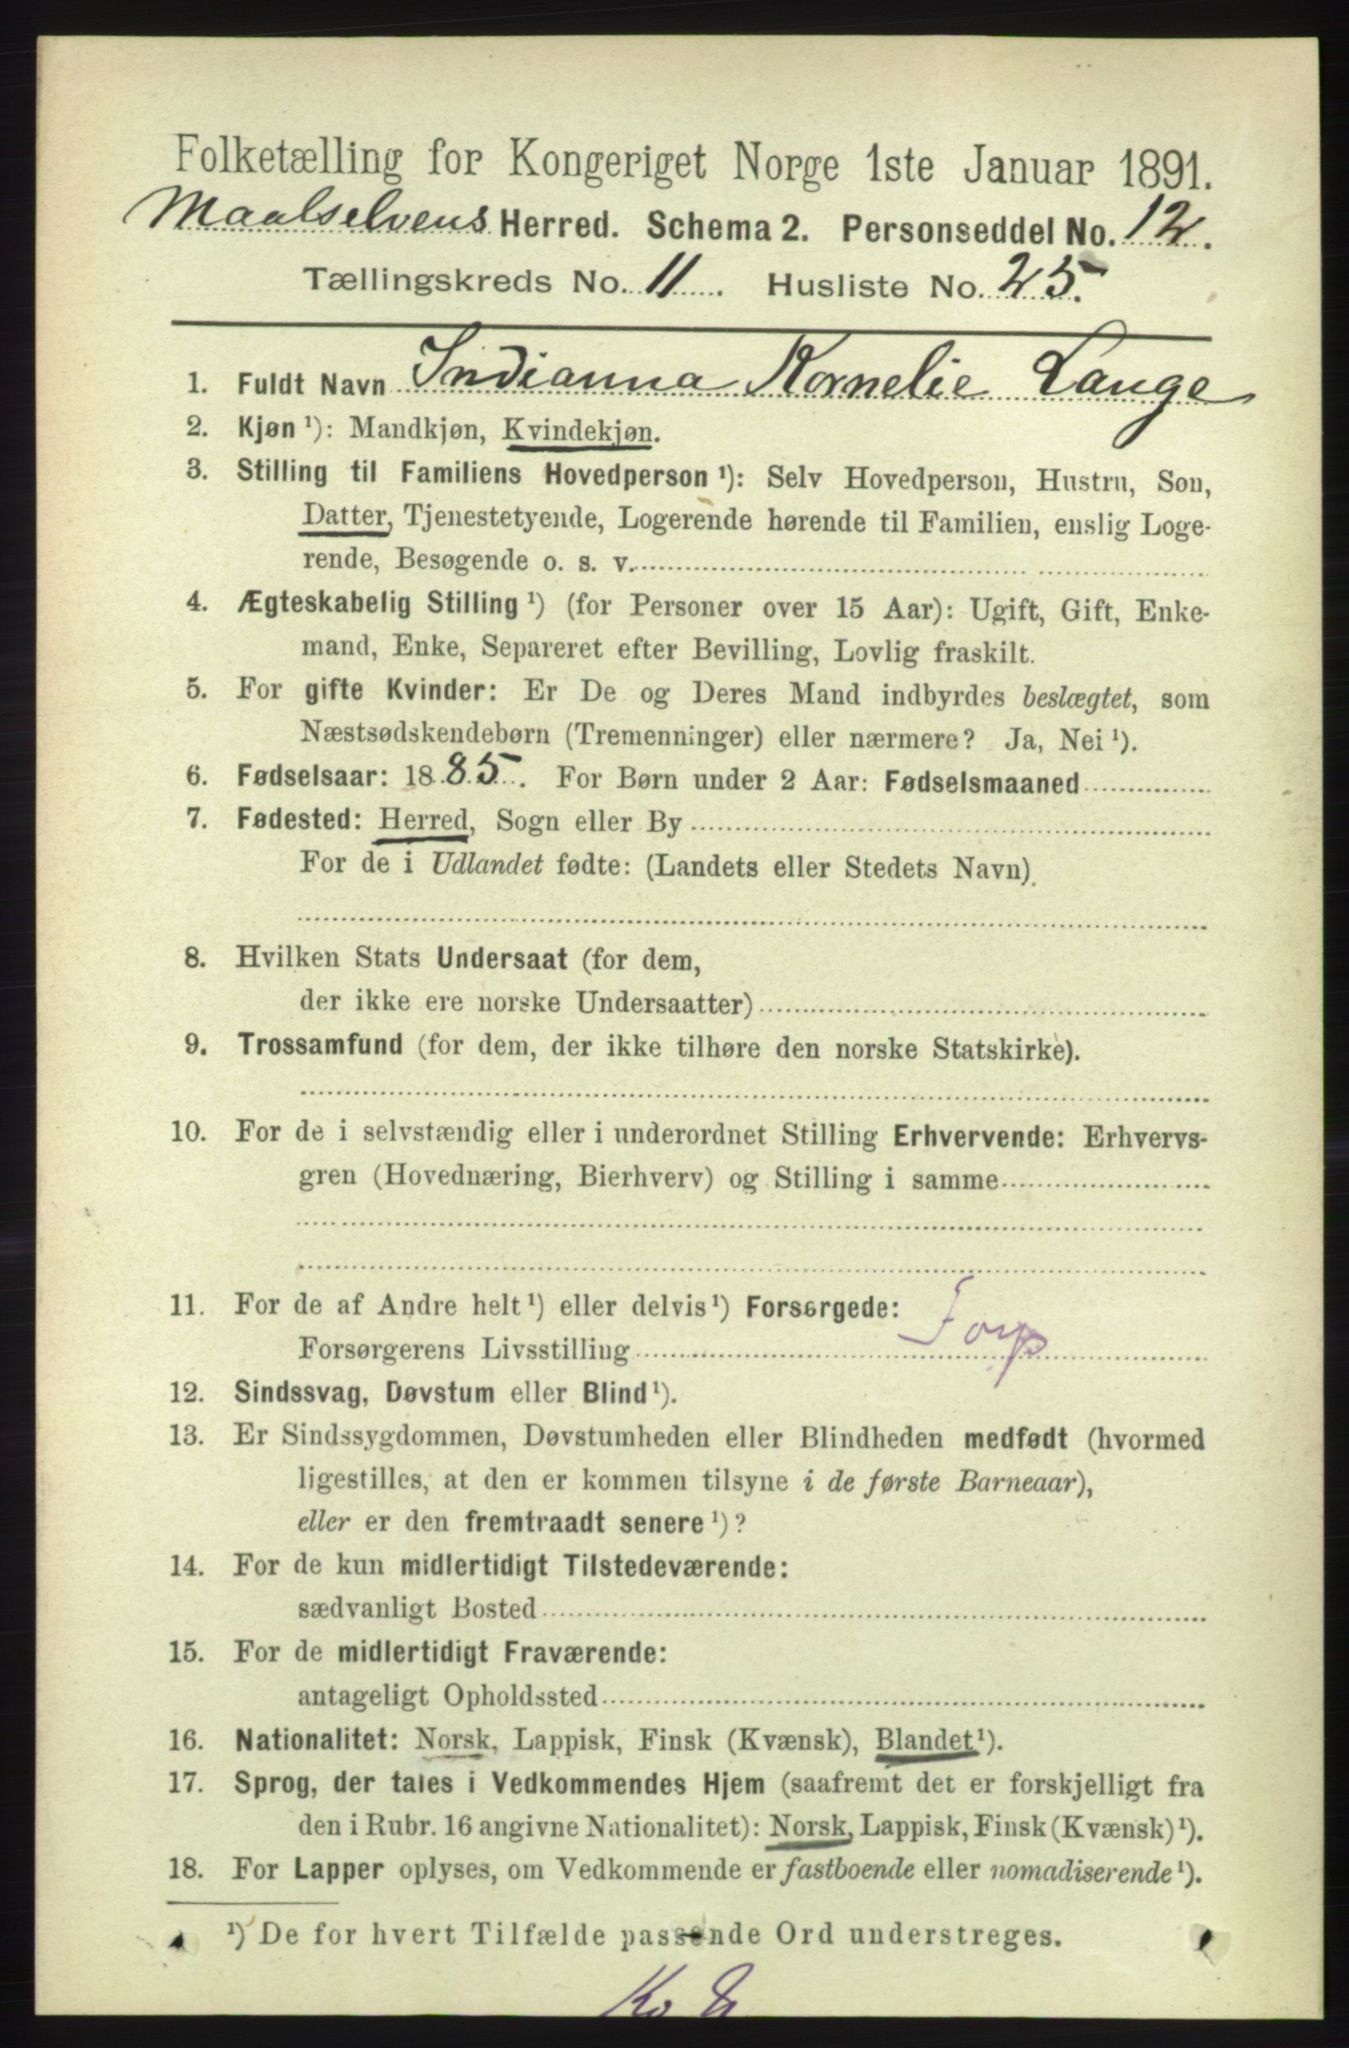 Folketælling for Kongeriget Norge 1ste Januar 1891.
Maalselvens Herred. Schema 2. Personseddel No. 12.
Tællingskreds No. 11. Husliste No. 25.
1. Fuldt Navn Indianna Kornelie Lange
2. Kjøn ¹): Mandkjøn, Kvindekjøn.
3. Stilling til Familiens Hovedperson ¹): Selv Hovedperson, Hustru, Søn,
Datter, Tjenestetyende, Logerende hørende til Familien, enslig Loge-
rende, Besøgende o. s. v.
4. Ægteskabelig Stilling ¹) (for Personer over 15 Aar): Ugift, Gift, Enke-
mand, Enke, Separeret efter Bevilling, Lovlig fraskilt.
5. For gifte Kvinder: Er De og Deres Mand indbyrdes beslægtet, som
Næstsødskendebørn (Tremenninger) eller nærmere? Ja, Nei ¹).
6. Fødselsaar: 1885. For Børn under 2 Aar: Fødselsmaaned
7. Fødested: Herred, Sogn eller By
For de i Udlandet fødte: (Landets eller Stedets Navn).
8. Hvilken Stats Undersaat (for dem,
der ikke ere norske Undersaatter)
9. Trossamfund (for dem, der ikke tilhøre den norske Statskirke).
10. For de i selvstændig eller i underordnet Stilling Erhvervende: Erhvervs-
gren (Hovednæring, Bierhverv) og Stilling i samme
11. For de af Andre helt ¹) eller delvis ¹) Forsørgede:
Forsørgerens Livsstilling
12. Sindssvag, Døvstum eller Blind ¹).
13. Er Sindssygdommen, Døvstumheden eller Blindheden medfødt (hvormed
ligestilles, at den er kommen tilsyne i de første Barneaar),
eller er den fremtraadt senere ¹)?
14. For de kun midlertidigt Tilstedeværende:
sædvanligt Bosted
15. For de midlertidigt Fraværende:
antageligt Opholdssted
16. Nationalitet: Norsk, Lappisk, Finsk (Kvænsk), Blandet ¹).
17. Sprog, der tales i Vedkommendes Hjem (saafremt det er forskjelligt fra
den i Rubr. 16 angivne Nationalitet): Norsk, Lappisk, Finsk (Kvænsk) ¹).
18. For Lapper oplyses, om Vedkommende er fastboende eller nomadiserende ¹).
¹) De for hvert Tilfælde passende Ord understreges.